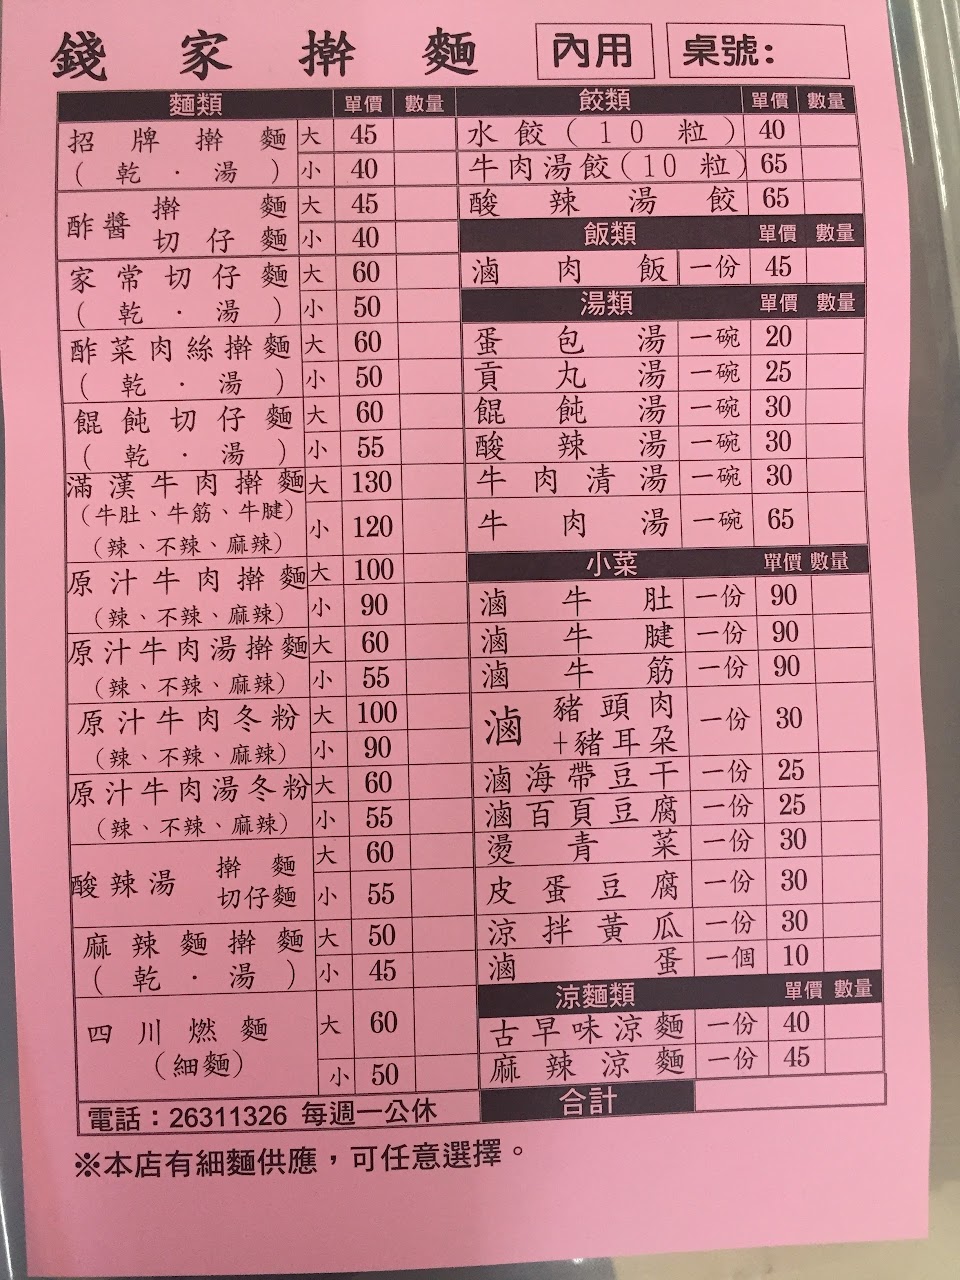 錢家擀麵 內用 桌號:
麵類 單價 數量
招牌擀麵 大 45
(乾．湯) 小 40
酢醬 擀麵 大 45
切仔麵 小 40
家常切仔麵 大 60
(乾．湯) 小 50
酢菜肉絲擀麵 大 60
(乾．湯) 小 50
餛飩切仔麵 大 60
(乾．湯) 小 55
滿漢牛肉擀麵 大 130
(牛肚、牛筋、牛腱)
(辣、不辣、麻辣) 小 120
原汁牛肉擀麵 大 100
(辣、不辣、麻辣) 小 90
原汁牛肉湯擀麵 大 60
(辣、不辣、麻辣) 小 55
原汁牛肉冬粉 大 100
(辣、不辣、麻辣) 小 90
原汁牛肉湯冬粉 大 60
(辣、不辣、麻辣) 小 55
酸辣湯 擀麵 大 60
切仔麵 小 55
麻辣麵擀麵 大 50
(乾．湯) 小 45
四川燃麵 大 60
(細麵) 小 50
電話：26311326 每週一公休
餃類 單價 數量
水餃(10粒) 40
牛肉湯餃(10粒) 65
酸辣湯餃 65
飯類 單價 數量
滷肉飯 一份 45
湯類 單價 數量
蛋包湯 一碗 20
貢丸湯 一碗 25
餛飩湯 一碗 30
酸辣湯 一碗 30
牛肉清湯 一碗 30
牛肉湯 一碗 65
小菜 單價 數量
滷牛肚 一份 90
滷牛腱 一份 90
滷牛筋 一份 90
滷 豬頭肉
+豬耳朵 一份 30
滷海帶豆干 一份 25
滷百頁豆腐 一份 25
燙青菜 一份 30
皮蛋豆腐 一份 30
涼拌黃瓜 一份 30
滷蛋 一個 10
涼麵類 單價 數量
古早味涼麵 一份 40
麻辣涼麵 一份 45
合計
※本店有細麵供應，可任意選擇。